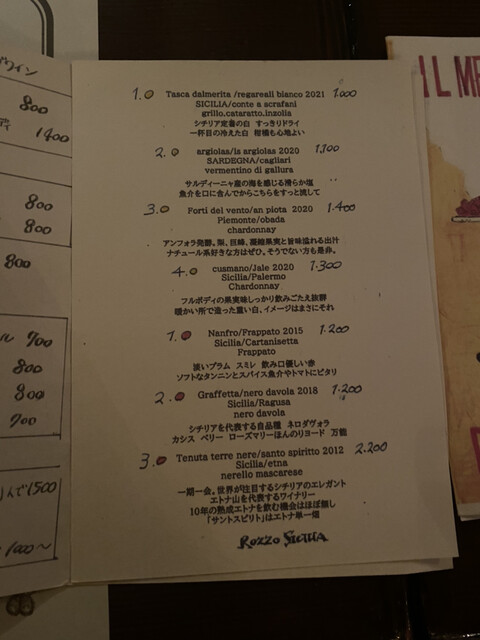 ワイン
800
1400
800
800
800
700
800
800
700
1500
1000〜
1. Tasca dalmerita /regareali bianco 2021 1.000
SICILIA/conte a scrafani
grillo.cataratto.inzolia
シチリア定番の白 すっきりドライ
一杯目の冷えた白 柑橘も心地よい
2. argiolas/is argiolas 2020 1.100
SARDEGNA/cagliari
vermentino di gallura
サルディーニャ産の海を感じる滑らか塩
魚介を口に含んでからこちらをすっと流して
3. Forti del vento/an piota 2020 1.400
Piemonte/obada
chardonnay
アンフォラ発酵。梨、豆蜂、凝縮果実と旨味溢れる出汁
ナチュール系好きな方はぜひ。そうでない方も是非。
4. cusmano/Jale 2020 1.300
Sicilia/Palermo
Chardonnay
フルボディの果実味しっかり飲みごたえ抜群
暖かい所で造った重い白、イメージはまさにそれ
1. Nanfro/Frappato 2015 1.200
Sicilia/Cartanisetta
Frappato
淡いプラム スミレ 飲み口優しい赤
ソフトなタンニンとスパイス魚介やトマトにピタリ
2. Graffetta/nero davola 2018 1.200
Sicilia/Ragusa
nero davola
シチリアを代表する自品種 ネロダヴォラ
カシス ベリー ローズマリーほんのりヨード 万能
3. Tenuta terre nere/santo spiritto 2012 2.200
Sicilia/etna
nerello mascarese
一期一会。世界が注目するシチリアのエレガント
エトナ山を代表するワイナリー
10年の熟成エトナを飲む機会はほぼ無し
「サントスピリト」はエトナ単一畑
Rozzo Sicilia
IL ME